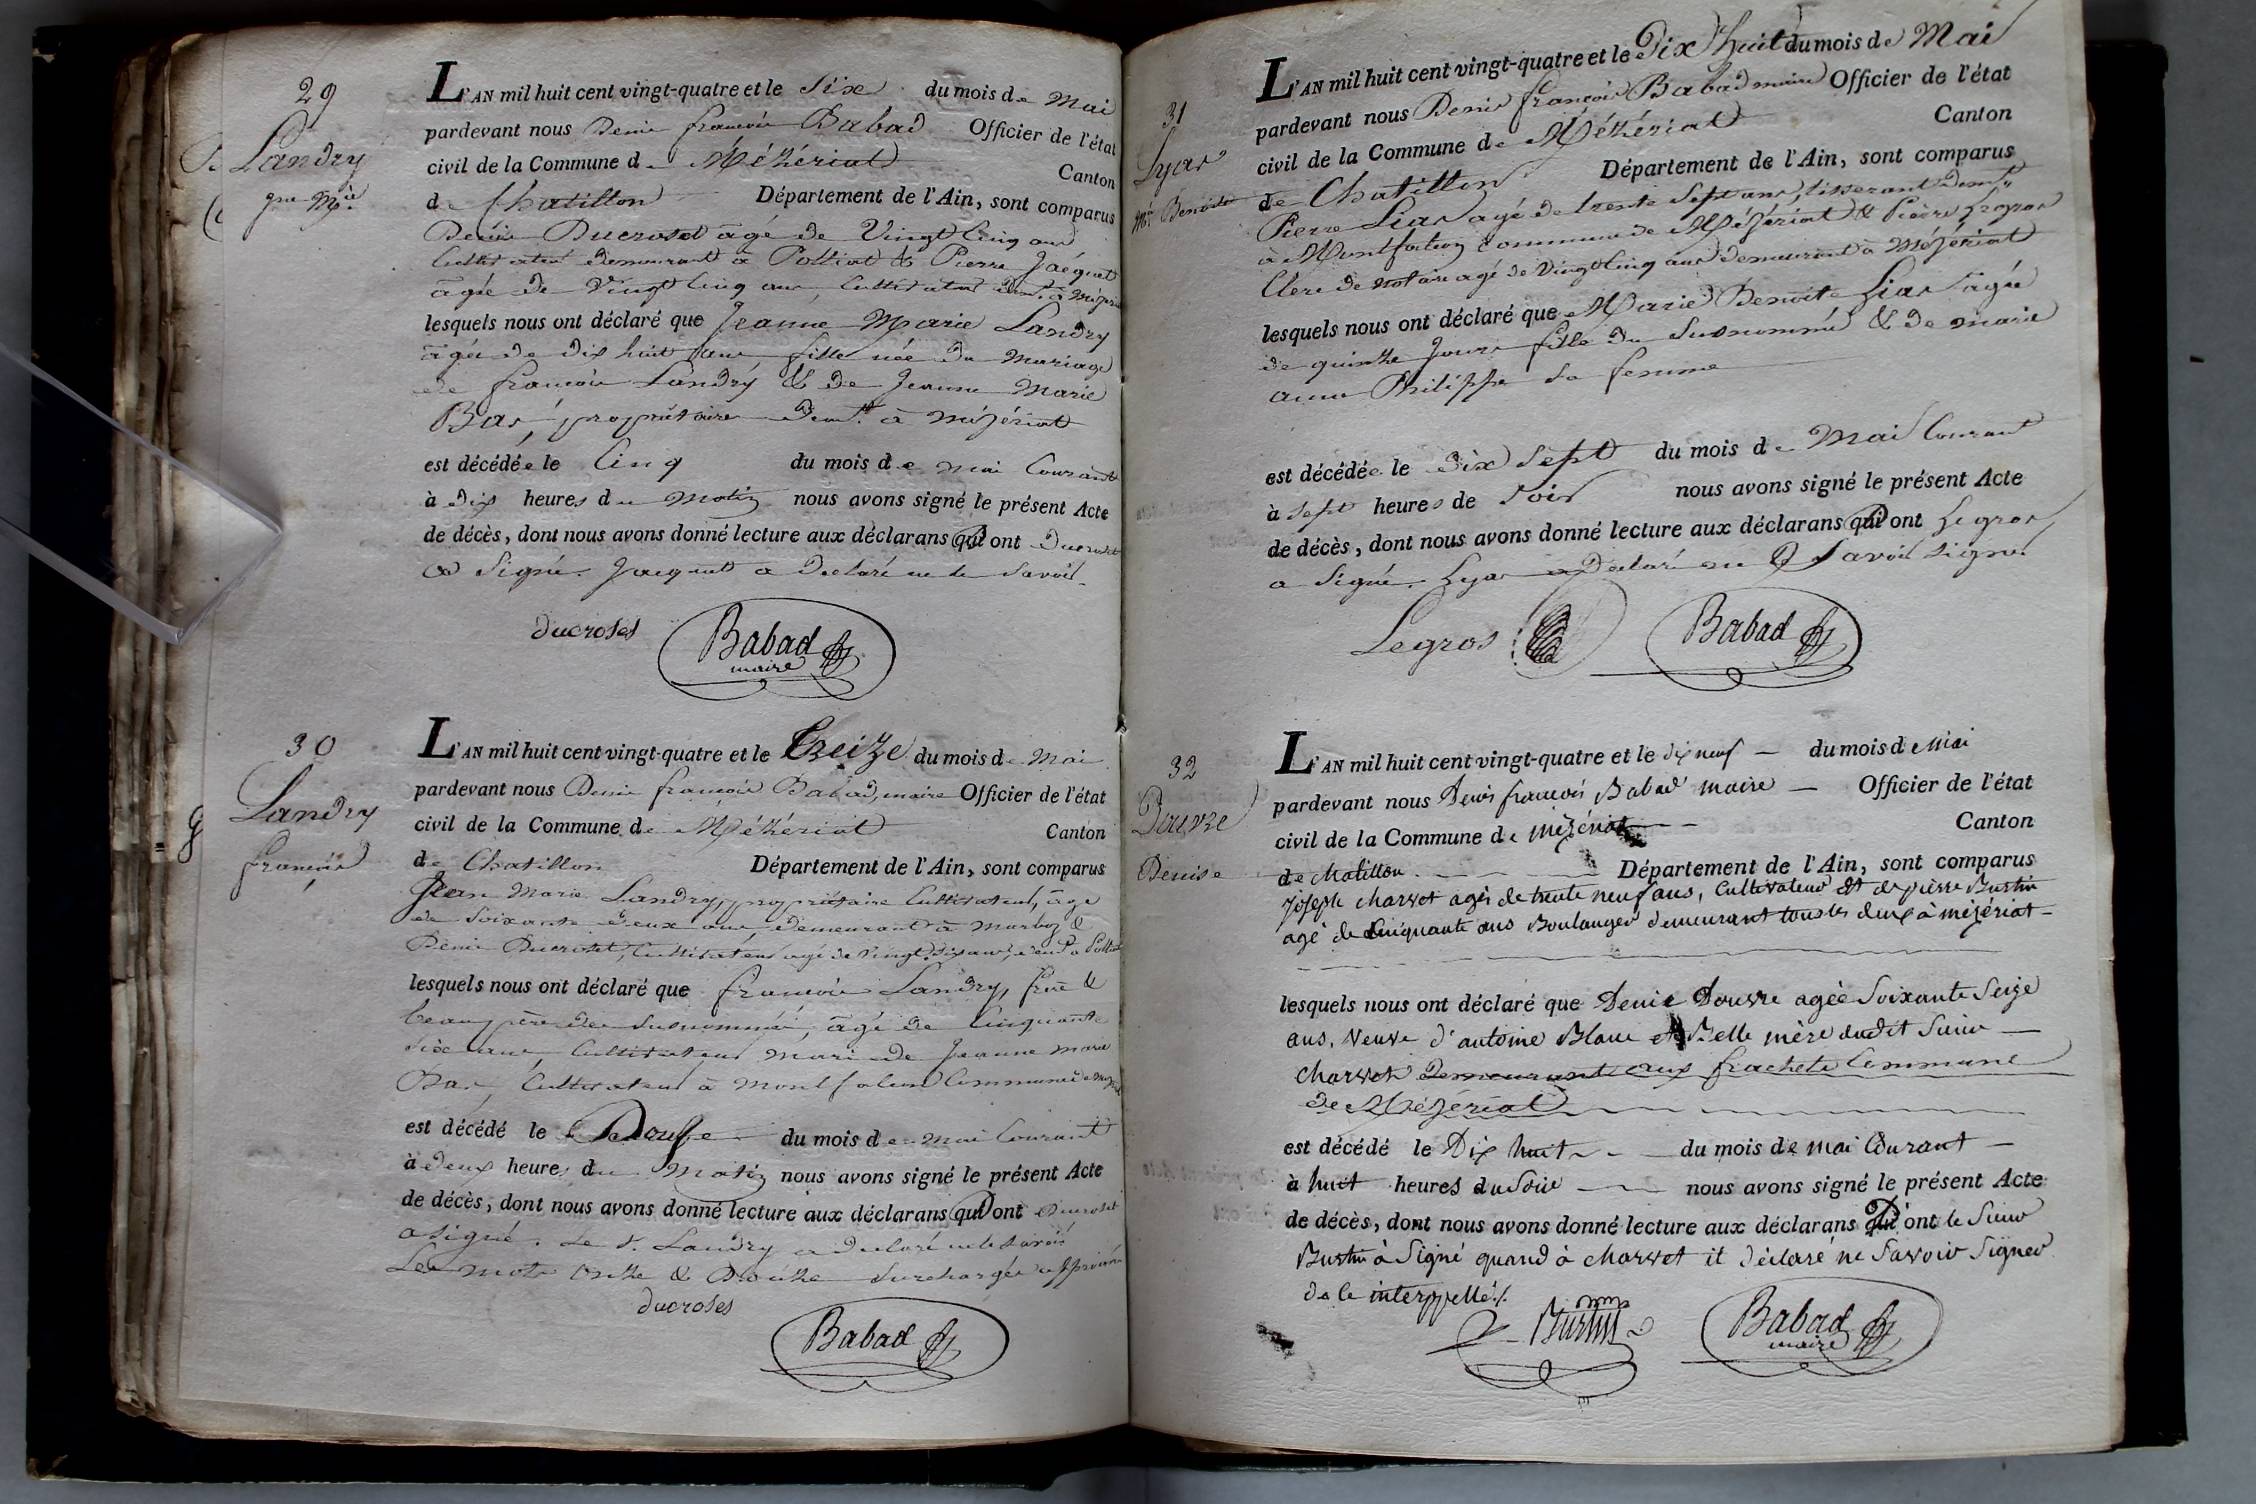 29
Landry
jne Mie
L'AN mil huit cent vingt-quatre et le Six du mois de Mai
pardevant nous Denis françois Babad Officier de l'état
civil de la Commune de Mézériat Canton
de Chatillon Département de l'Ain, sont comparus
Denis Ducroset âgé de Vingt Cinq ans
Cultivateur demeurant à Polliat & Pierre Jacquet
âgée de Vingt Cinq ans, Cultivateur demt. à Mézériat
lesquels nous ont déclaré que Jeanne Marie Landry
âgée de dix huit ans, fille née du Mariage
de françois Landry & de Jeanne Marie
Bas, propriétaires demt. à mézériat
est décédée le Cinq du mois de mai Courant
à dix heures du Matin nous avons signé le présent Acte
de décès, dont nous avons donné lecture aux déclarans qui ont Ducroset
a Signé. Jacquet a Déclaré ne le Savoir
ducroses
Babad
maire
30
Landry
françois
L'AN mil huit cent vingt-quatre et le treize du mois de Mai
pardevant nous Denis françois Babad, maire Officier de l'état
civil de la Commune de Mézériat Canton
de Chatillon Département de l'Ain, sont comparus
Jean Marie Landry, propriétaire Cultivateur, âgé
de Soixante deux ans demeurant à Marboz &
Denis Ducroset, Cultivateur agé de Vingt Six ans, demt. à Polliat
lesquels nous ont déclaré que françois Landry, frère &
beau père des Susnommés, âgé de Cinquante
Six ans, Cultivateur mari de Jeanne marie
Bas, Cultivateur à Montfalcon Commune de Mézériat
est décédé le Douze du mois de Mai Courant
à deux heures du Matin nous avons signé le présent Acte
de décès, dont nous avons donné lecture aux déclarans qui ont Ducroset
a signé. Le s. Landry a déclaré ne le savoir
Les mots onze & Douze Surchargés approuvés
ducroses
Babad
31
Lyas
Mie Benoite
L'AN mil huit cent vingt-quatre et le Dix huit du mois de Mai
pardevant nous Denis françois Babad maire Officier de l'état
civil de la Commune de Mézériat Canton
de Chatillon Département de l'Ain, sont comparus
Pierre Lias agé de trente Sept ans, tisserant demt.
à Montfalcon Commune de Mézériat & Pierre Legros
Clerc de notaire agé de Vingt Cinq ans demeurant à Mézériat
lesquels nous ont déclaré que Marie Benoite Lias agée
de quinze Jours fille du Susnommé & de marie
anne Philippe sa femme
est décédée le dix Sept du mois de Mai Courant
à Sept heures de Soir nous avons signé le présent Acte
de décès, dont nous avons donné lecture aux déclarans qui ont Legros,
a Signé. Lyas a Déclaré ne Savoir Signer
Legros
Babad
32
Douvre
Denise
L'AN mil huit cent vingt-quatre et le dix neuf du mois de Mai
pardevant nous Denis françois Babad maire Officier de l'état
civil de la Commune de mézériat Canton
de Chatillon Département de l'Ain, sont comparus
joseph charvet agés de trente neuf ans, Cultivateur et de pierre Burtin
agé de Cinquante ans Boulanger demeurant tous les deux à mézériat
lesquels nous ont déclaré que Denise Douvre agée Soixante Seize
ans, Veuve d'antoine Blanc et Belle mère dudit Sieur
charvet demeurante aux frachets Commune
de Mézériat
est décédé le Dix huit du mois de mai Courant
à huit heures du Soir nous avons signé le présent Acte
de décès, dont nous avons donné lecture aux déclarans qui ont le Sieur
Burtin à Signé quand à charvet il déclaré ne Savoir Signer
de ce interppellé./.
Burtin
Babad
maire